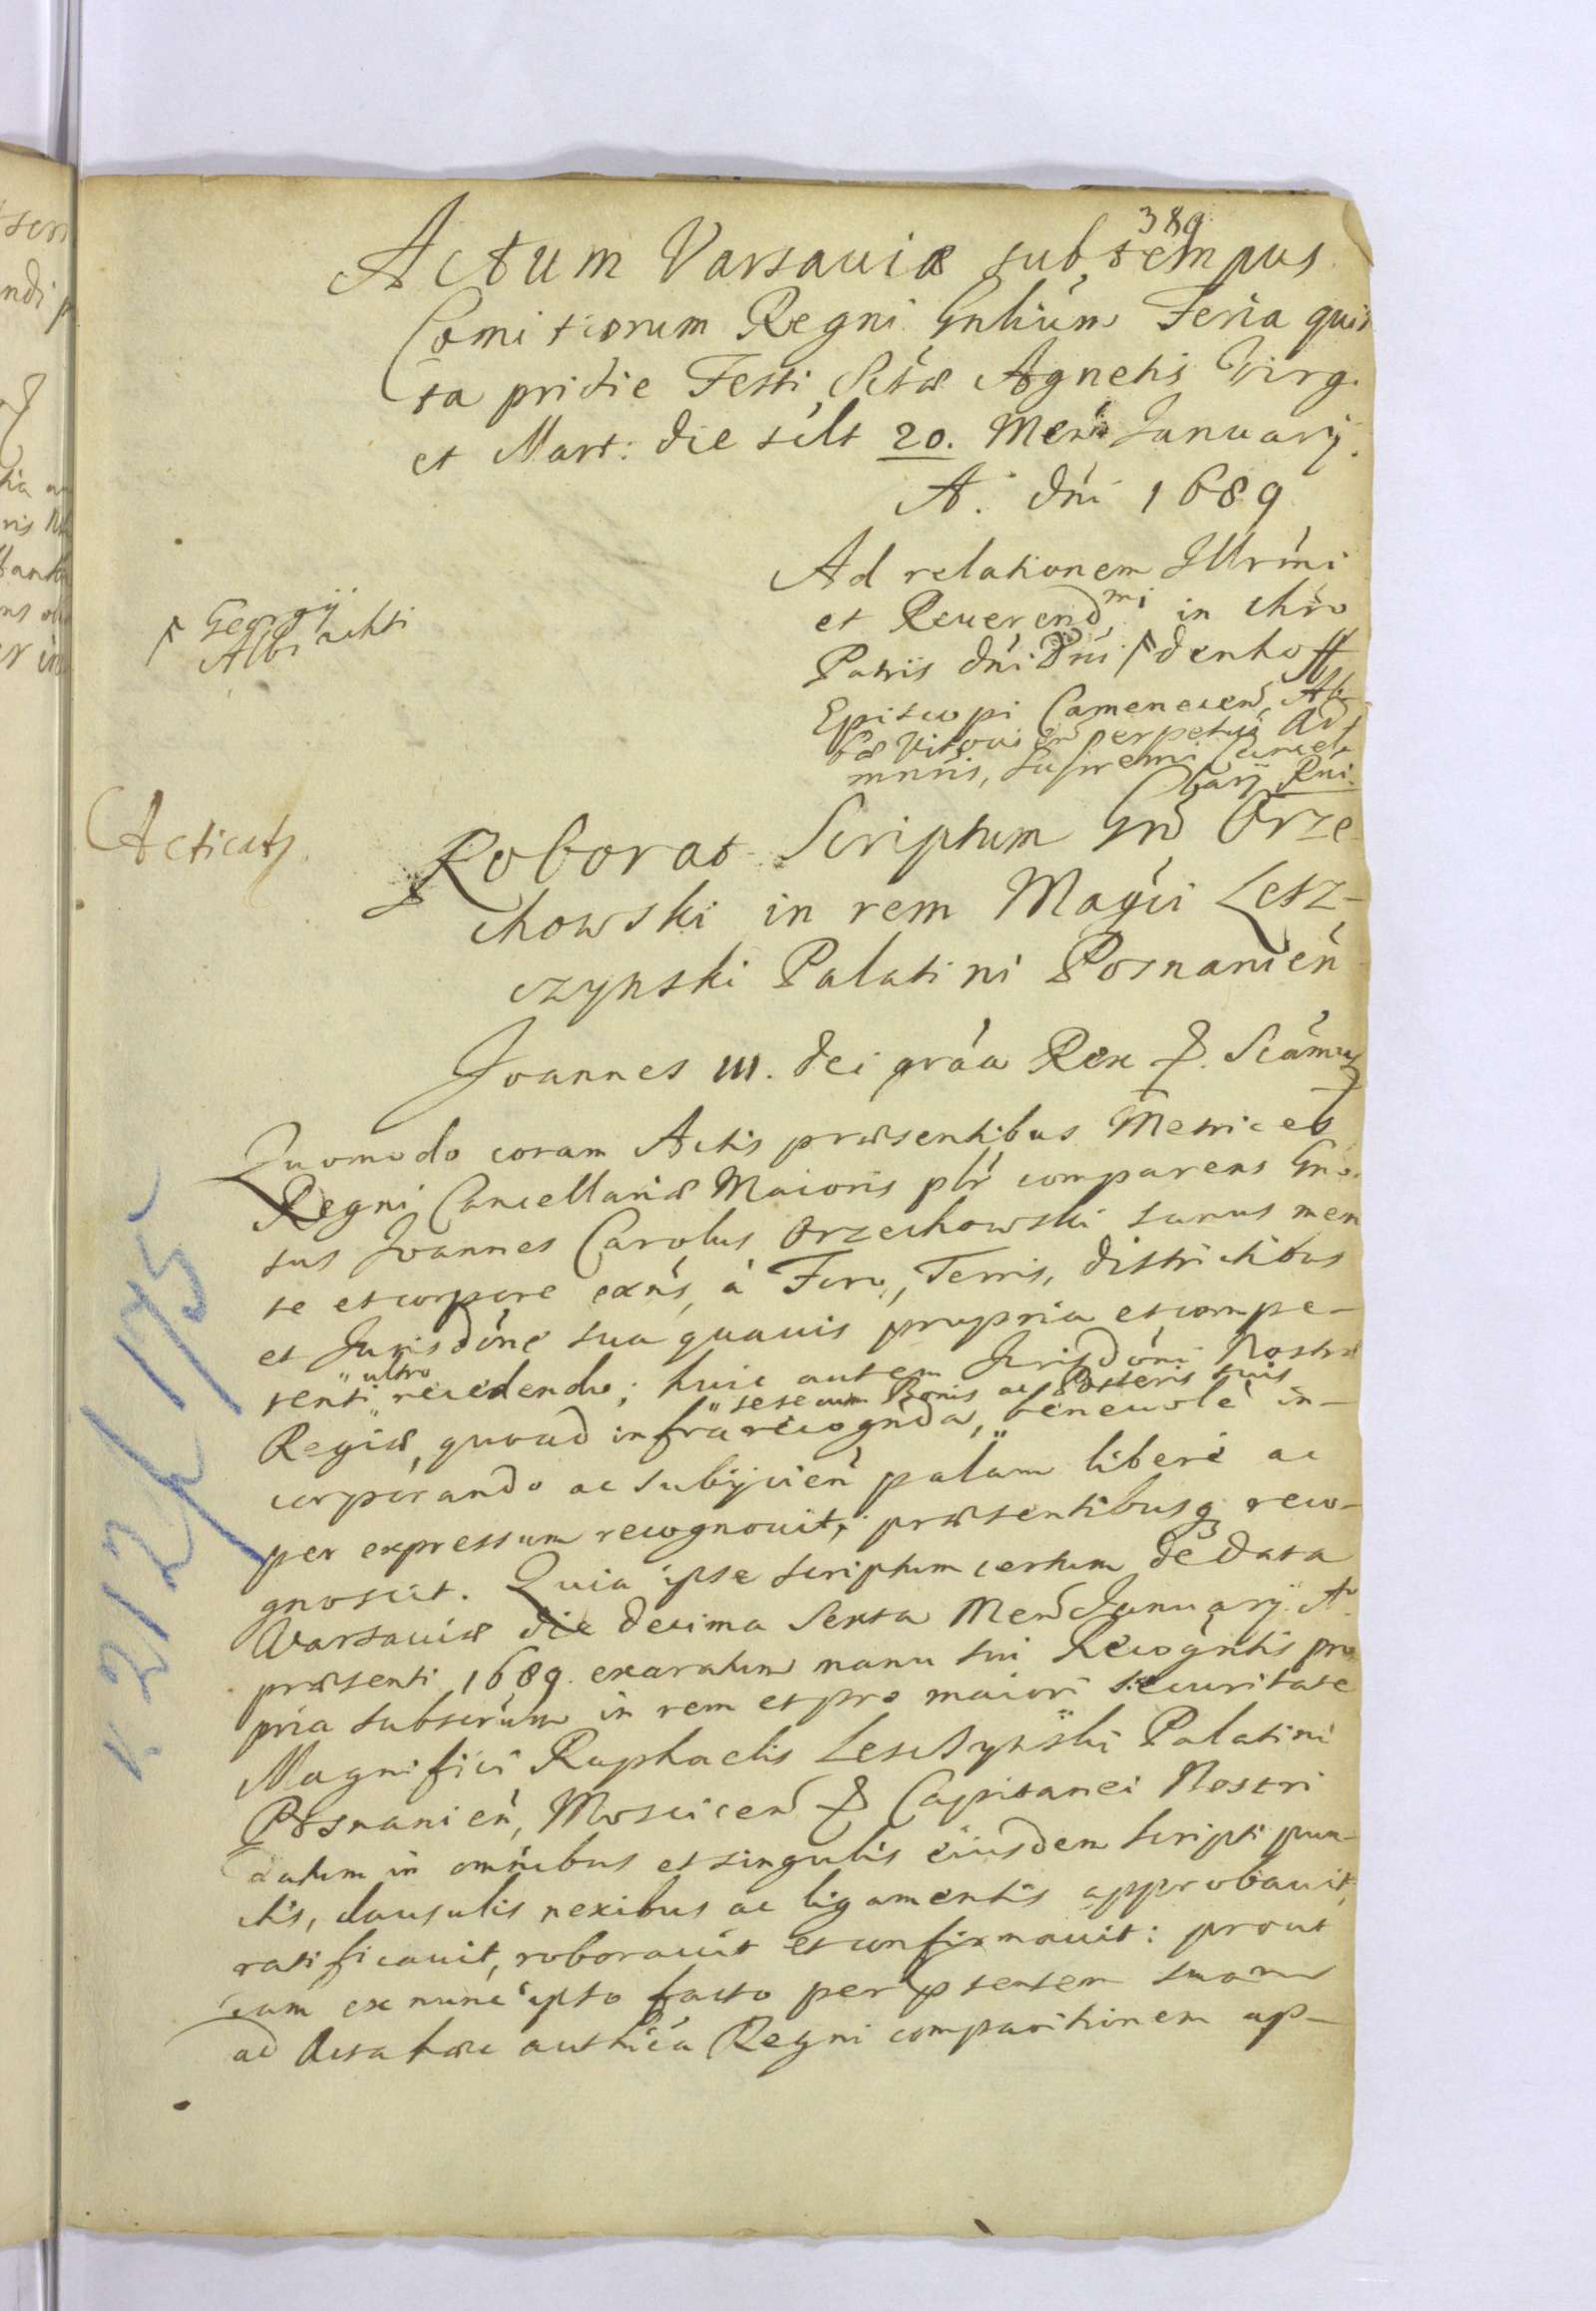 389
Actum Varsauiæ sub tempus
Comitiorum Regni Gnlium Feria quin
ta pridie Festi Sctæ Agnetis Virg.
et Mart: die scilt 20. Mens January
A. dni 1689
Ad relationem Illrmi
et Reuerendmi in chro
Patris dni Dni denhoff
Georgÿ
Albrachti
Episcopi Camenecen, Ab-
bæ perpetui Ad
mnris, Supremi Cancel-
lary Rni.
Acticat
Roborat Scriptum Gnd Orze
chowski in rem Magci Lesz-
czynski Palatini Posnanien
Joannes III. dei gráa Rex Scámus
Quomodo coram Actis præsentibus Metrices
Regni Cancellariæ Maioris plr comparens Gno-
sus Joannes Carolus Orzechowski sanus men
te et corpore exns, à Foro, Terris, districtibus
et Jurisdóne sua quauis propria et compe-
tenti ultro recedendo; huic autem Jurisdóni Nostræ
Regiæ, quoad infrarecognda, sese cum Bonis ac Posteris suis beneuolè in-
corporando ac subijcien palam liberè ac
per expressum recognouit, præsentibusq reco-
gnoscit. Quia ipse scriptum certum de data
Varsauiæ die decima Sexta Mens January Ao
præsenti 1689. exaratum manu sui Recogntis pro
pria subscrum in rem et pro maiori securitate
Magnifici Raphaelis Lescsynski Palatini
Posnanien, Moscicen Capitanei Nostri
datum in omnibus et singulis eiusdem scripti pun-
ctis, clausulis nexibus ac ligamentis approbauit,
ratificauit, roborauit et confirmauit: prout
iam ex nunc ipso facto per psentem suam
ad Acta hæc authca Regni comparitionem ap-